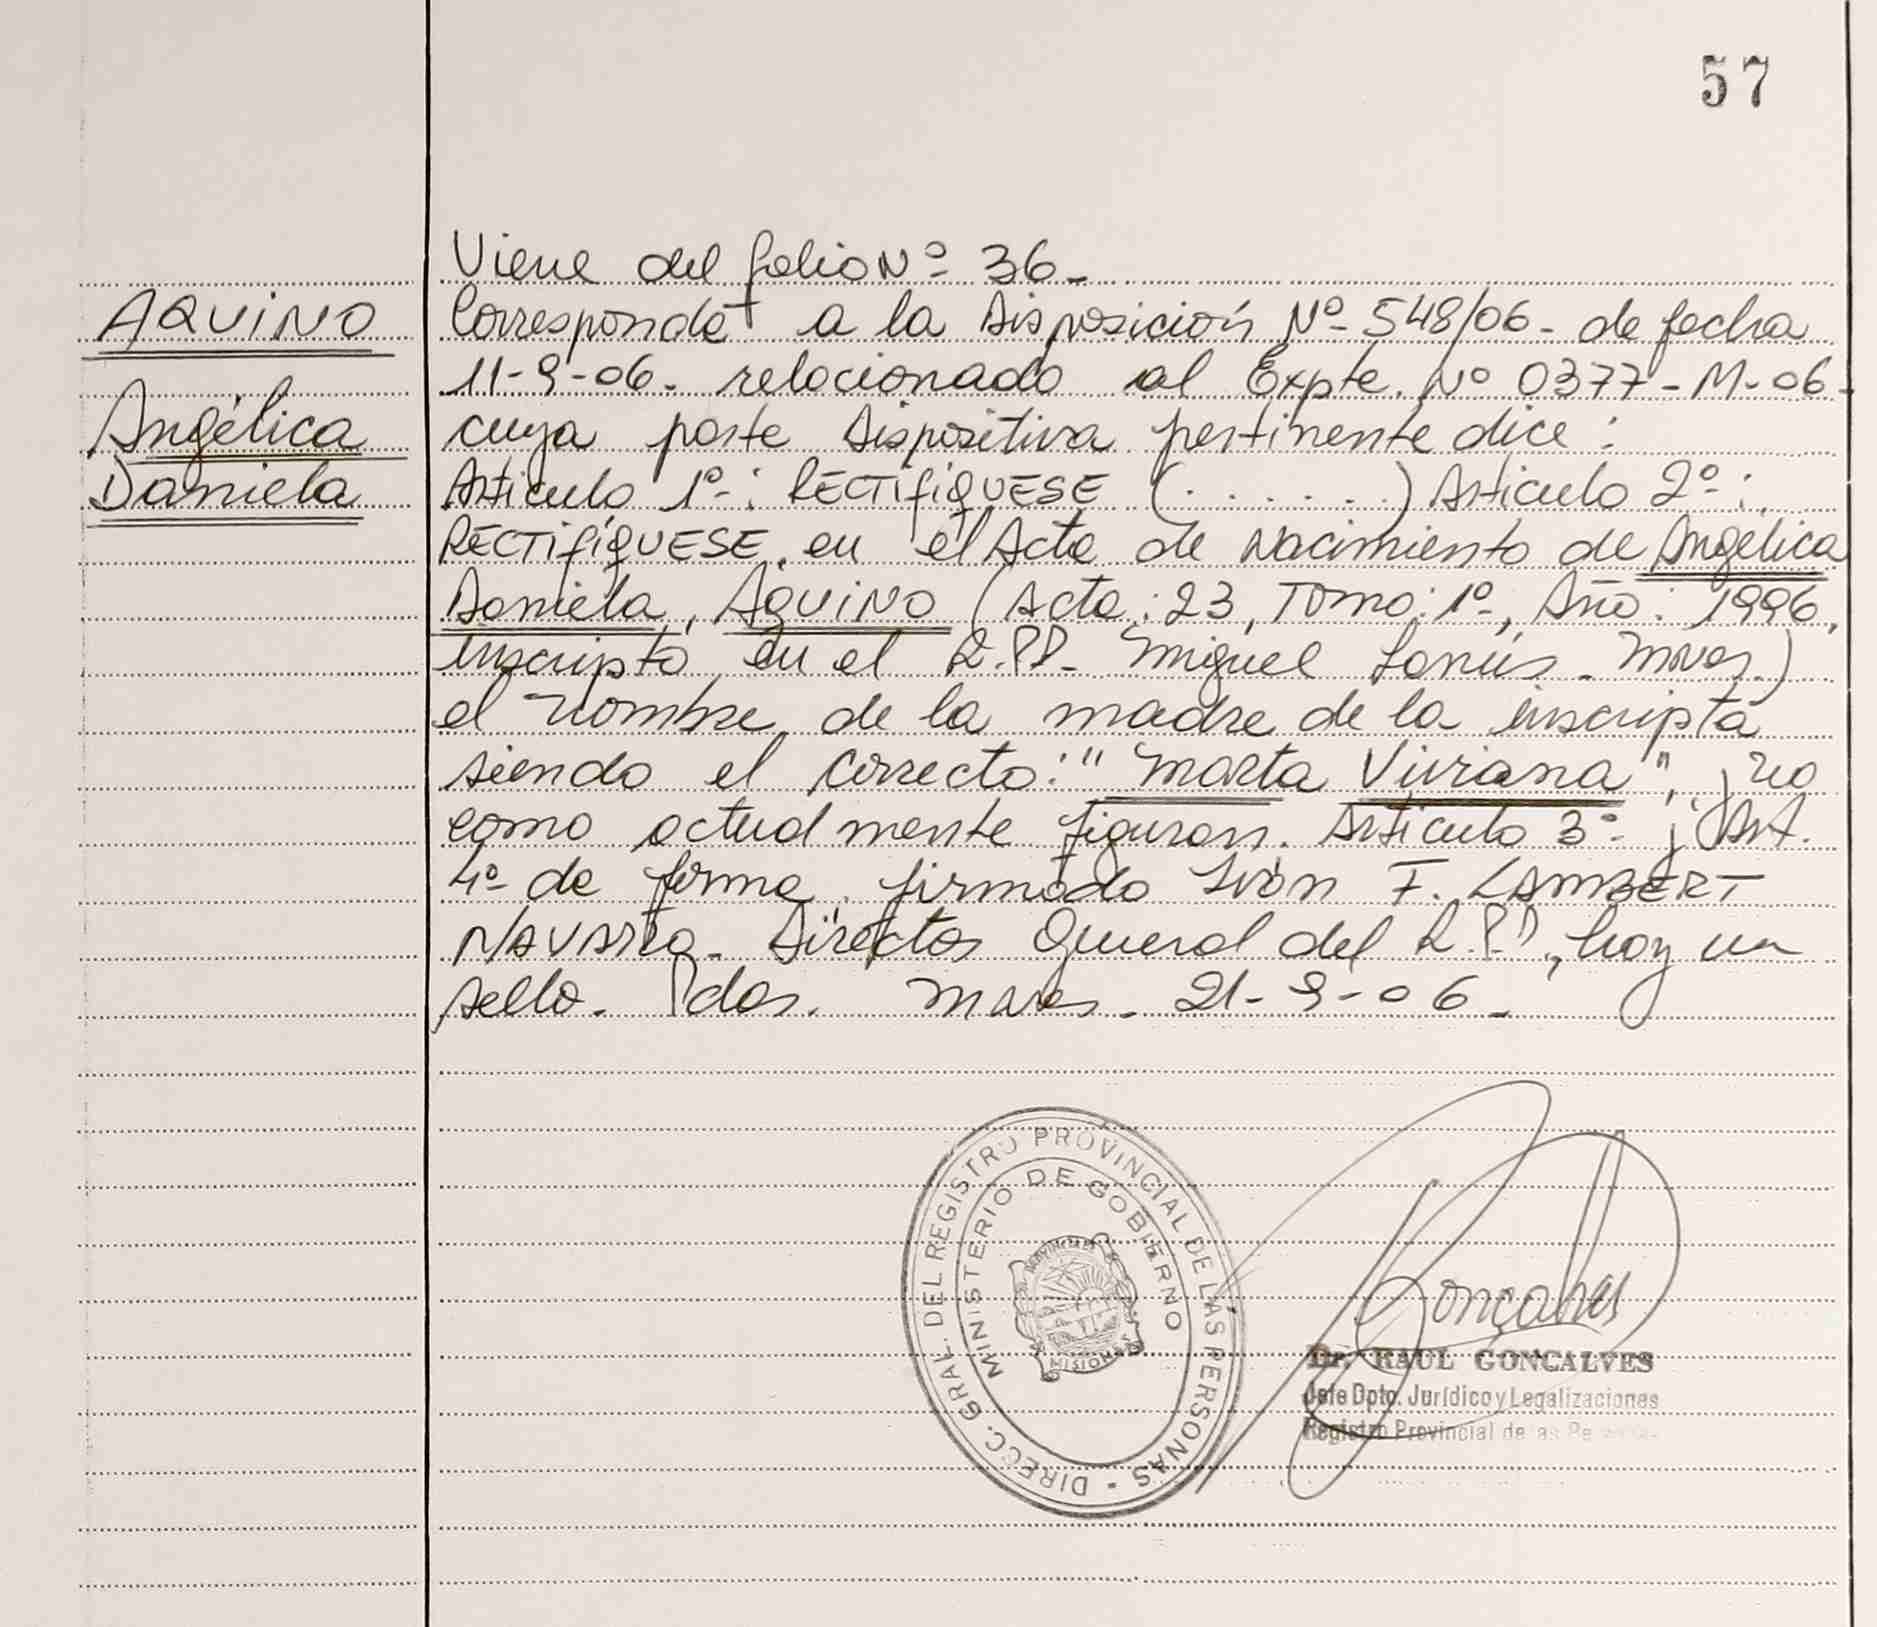 57
AQUINO
Angélica
Daniela
Viene del folio Nº 36_
Corresponde a la Disposición Nº 548/06_ de fecha
11-9-06_ relacionado al Expte. Nº 0377-M-06_
cuya parte Dispositiva pertinente dice:
Artículo 1º: RECTIFÍQUESE (.......) Artículo 2º:
RECTIFÍQUESE, en el Acta de Nacimiento de Angélica
Daniela, AQUINO (Acta: 23, Tomo: 1º, Año: 1996,
inscripta en el R.P.P. Miguel Lanús_ Mnes.)
el nombre de la madre de la inscripta
siendo el correcto: "Marta Viviana", y no
como actualmente figuran. Artículo 3º y Art.
4º de forma, firmado Iván F. LAMBERT
NAVARRO_ Director General del R.P.P, hay un
sello. Pdas. Mnes_ 21-9-06_
DIRECC. GRAL. DEL REGISTRO PROVINCIAL DE LAS PERSONAS -
MINISTERIO DE GOBIERNO
MISIONES
Gonçalves
Dr. RAUL GONCALVES
Jefe Dpto. Jurídico y Legalizaciones
Registro Provincial de las